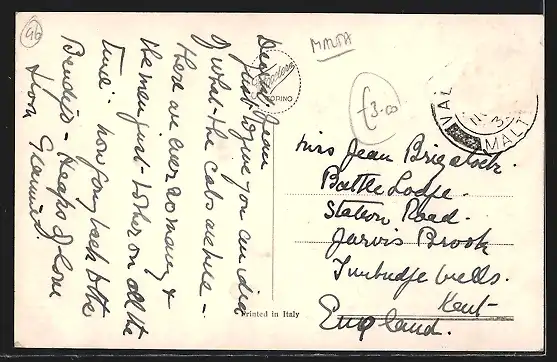 96
MALTA
£3.00
Dearest Jean
Just to give you an idea
of what the cabs are like -
There are ever so many &
the men just - on all the
time: how Gong back to the
- Heaps of love
from Grannie.
TORINO
VAL
MALT
Miss Jean Brigstock.
Battle Lodge.
Station Road.
Jarvis Brook
Tunbridge Wells.
Kent
England.
Printed in Italy